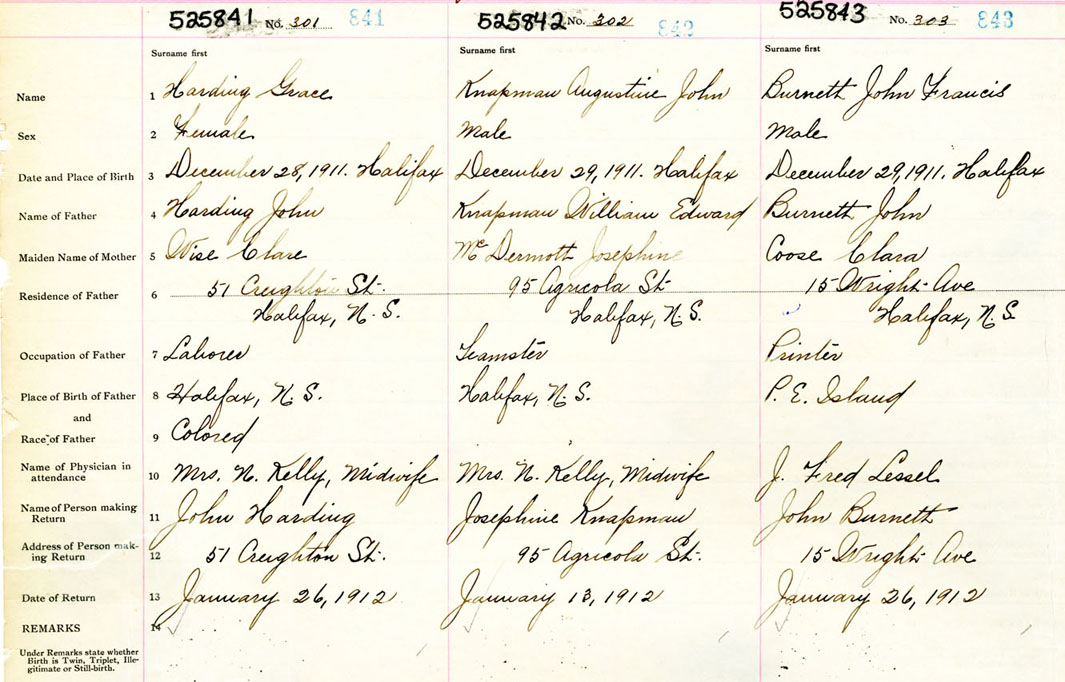 525841 No. 301 841 525842 No. 302 842 525843 No. 303 843
Surname first Surname first Surname first
Name 1 Harding Grace Knapman Augustine John Burnett John Francis
Sex 2 Female Male Male
Date and Place of Birth 3 December 28, 1911. Halifax December 29, 1911. Halifax December 29, 1911. Halifax
Name of Father 4 Harding John Knapman William Edward Burnett John
Maiden Name of Mother 5 Wise Clare McDermott Josephine Coose Clara
Residence of Father 6 51 Creighton St. 95 Agricola St. 15 Wright Ave
Halifax, N.S. Halifax, N.S. Halifax, N.S.
Occupation of Father 7 Laborer Teamster Printer
Place of Birth of Father 8 Halifax, N.S. Halifax, N.S. P. E. Island
and
Race of Father 9 Colored
Name of Physician in
attendance 10 Mrs. N. Kelly, Midwife Mrs. N. Kelly, Midwife J. Fred Lessel
Name of Person making
Return 11 John Harding Josephine Knapman John Burnett
Address of Person mak-
ing Return 12 51 Creighton St. 95 Agricola St. 15 Wright Ave
Date of Return 13 January 26, 1912 January 13, 1912 January 26, 1912
REMARKS 14
Under Remarks state whether
Birth is Twin, Triplet, Ille-
gitimate or Still-birth.